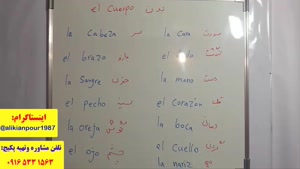 el cuerpo بدن
la cabeza سر la cara صورت
el brazo بازو el pelo
la sangre خون la mano دست
el pecho سینه el corazon قلب
la oreja گوش la boca دهان
el ojo چشم el cuello گردن
la nariz
اینستاگرام:
@alikianpour1987
تلفن مشاوره وتهیه پکیج:
۰۹۱۶ ۵۳۳ ۱۵۶۳